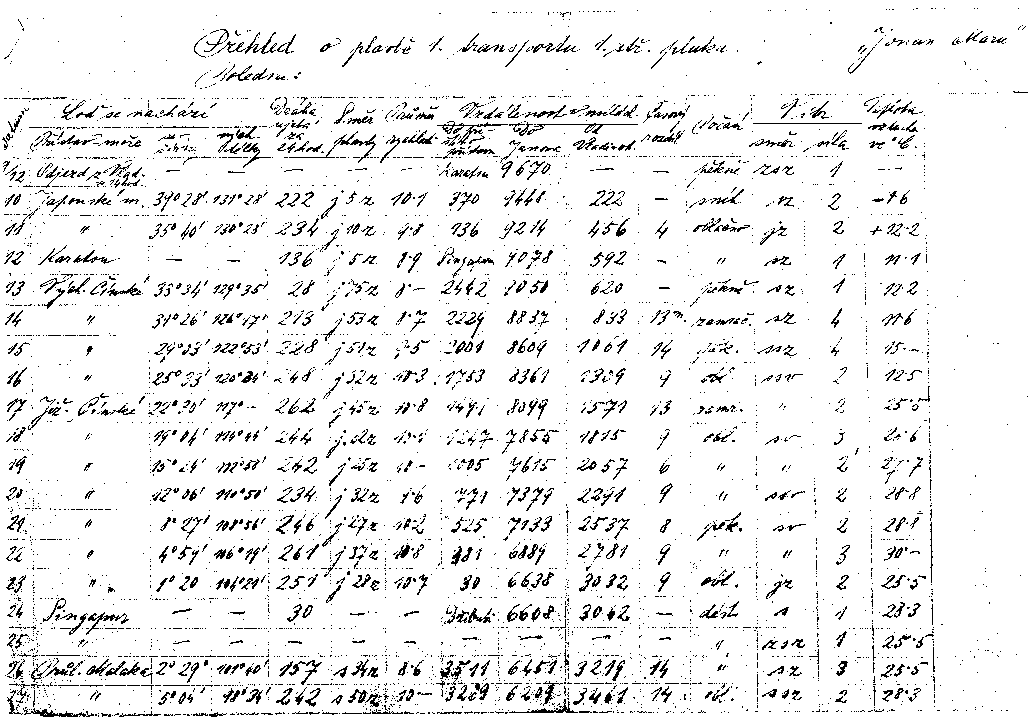 Přehled o plavbě 1. transportu 1. stř. pluku. "Jonan Maru"
Poledne:
Loď se nachází Dráha ujetá za 24 hod. Směr plavby rychlost Vzdálenost v mílích Časový rozdíl Počasí Vítr Teplota vzduchu ve °C
Přístav-moře délky Do Janova Od Vladivost. směr síla
Odjezd z — — — — — 9670 — pěkné zsz 1 —
10 Japonské m. 39° 28' 131° 28' 222 j5z 10·1 370 9448 222 — sníh sz 2 -16
11 " 35° 40' 130° 28' 234 j10z 9·8 136 9214 456 4 oblačno jz 2 +12·2
12 Karatsu — — 136 j5z 8·9 Singapur 9078 592 — " sz 1 11·1
13 Vých. Čínské 33° 34' 129° 35' 28 j75z 8·— 2442 9050 620 — pěkné sz 1 12·2
14 " 31° 26' 126° 17' 213 j53z 8·7 2229 8837 833 13m. zamrač. sz 4 11·6
15 " 29° 03' 122° 53' 228 j51z 9·5 2001 8609 1061 14 pěk. sz 4 15·—
16 " 25° 33' 120° 34' 248 j32z 10·3 1753 8361 1309 9 obl. ssv 2 12·5
17 Již. Čínské 22° 30' 117° — 262 j45z 10·8 1491 8099 1571 13 zamr. " 2 25·5
18 " 19° 04' 114° 44' 244 10·1 1247 7855 1815 9 obl. sv 3
19 " 15° 24' 112° 50' 242 j25z 10·— 1005 7615 2057 6 " " 2
20 " 12° 06' 110° 50' 234 j32z 9·6 771 7379 2291 9 " ssv 2 28·8
21 " 8° 27' 108° 56' 246 j27z 10·2 525 7133 2537 8 pěk. sv 2 28·1
22 " 4° 59' 106° 19' 261 j37z 10·8 281 6889 2781 9 " " 3 30·—
23 " " 1° 20 104° 21' 251 j28z 10·7 30 6638 3032 9 obl. jz 2 25·5
24 Singapur — — 30 — — Džibuti 6608 3062 — déšť s 1 28·3
25 " — — — — — — — — — " zsz 1 25·5
26 Průl. Malaka 2° 29' 101° 40' 157 s34z 8·6 3511 6451 3219 14 " sz 3 25·5
27 " 5° 04' 98° 34' 242 s50z 10·— 3269 6209 3461 14 obl. ssz 2 28·3